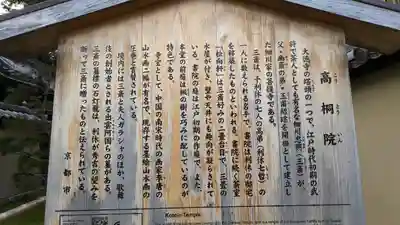 高桐院
こう とう いん
大徳寺の塔頭の一つで、江戸時代初期の武
将で茶人としても有名な細川忠興(三斎)が
父・幽斎の弟・玉甫紹琮を開祖として建立し
た細川家の菩提寺である。
三斎は、千利休の七人の高弟(利休七哲)の
一人に数えられる名手で、書院は利休の邸宅
を移築したものといわれる。書院に続く茶室
「松向軒」は三斎好みの二畳台目で、三畳の
水屋が付き、壁や天井にも趣向が凝らされて
いる。書院の庭は江戸初期の作庭で、また、
本堂の前庭は楓の樹を巧みに配しているのが
特色である。
寺宝として、中国の南宋時代の画家李唐の
山水画二幅が有名で、現存する墨絵山水画の
圧巻と言賞されている。
境内には三斎と夫人ガラシャのほか、歌舞
伎の創始者とされる出雲阿国らの墓がある。
三斎の墓標の石灯籠は、利休が秀吉の望みを
断って三斎に贈ったものと伝えられている。
京都市
Kotoin Temple